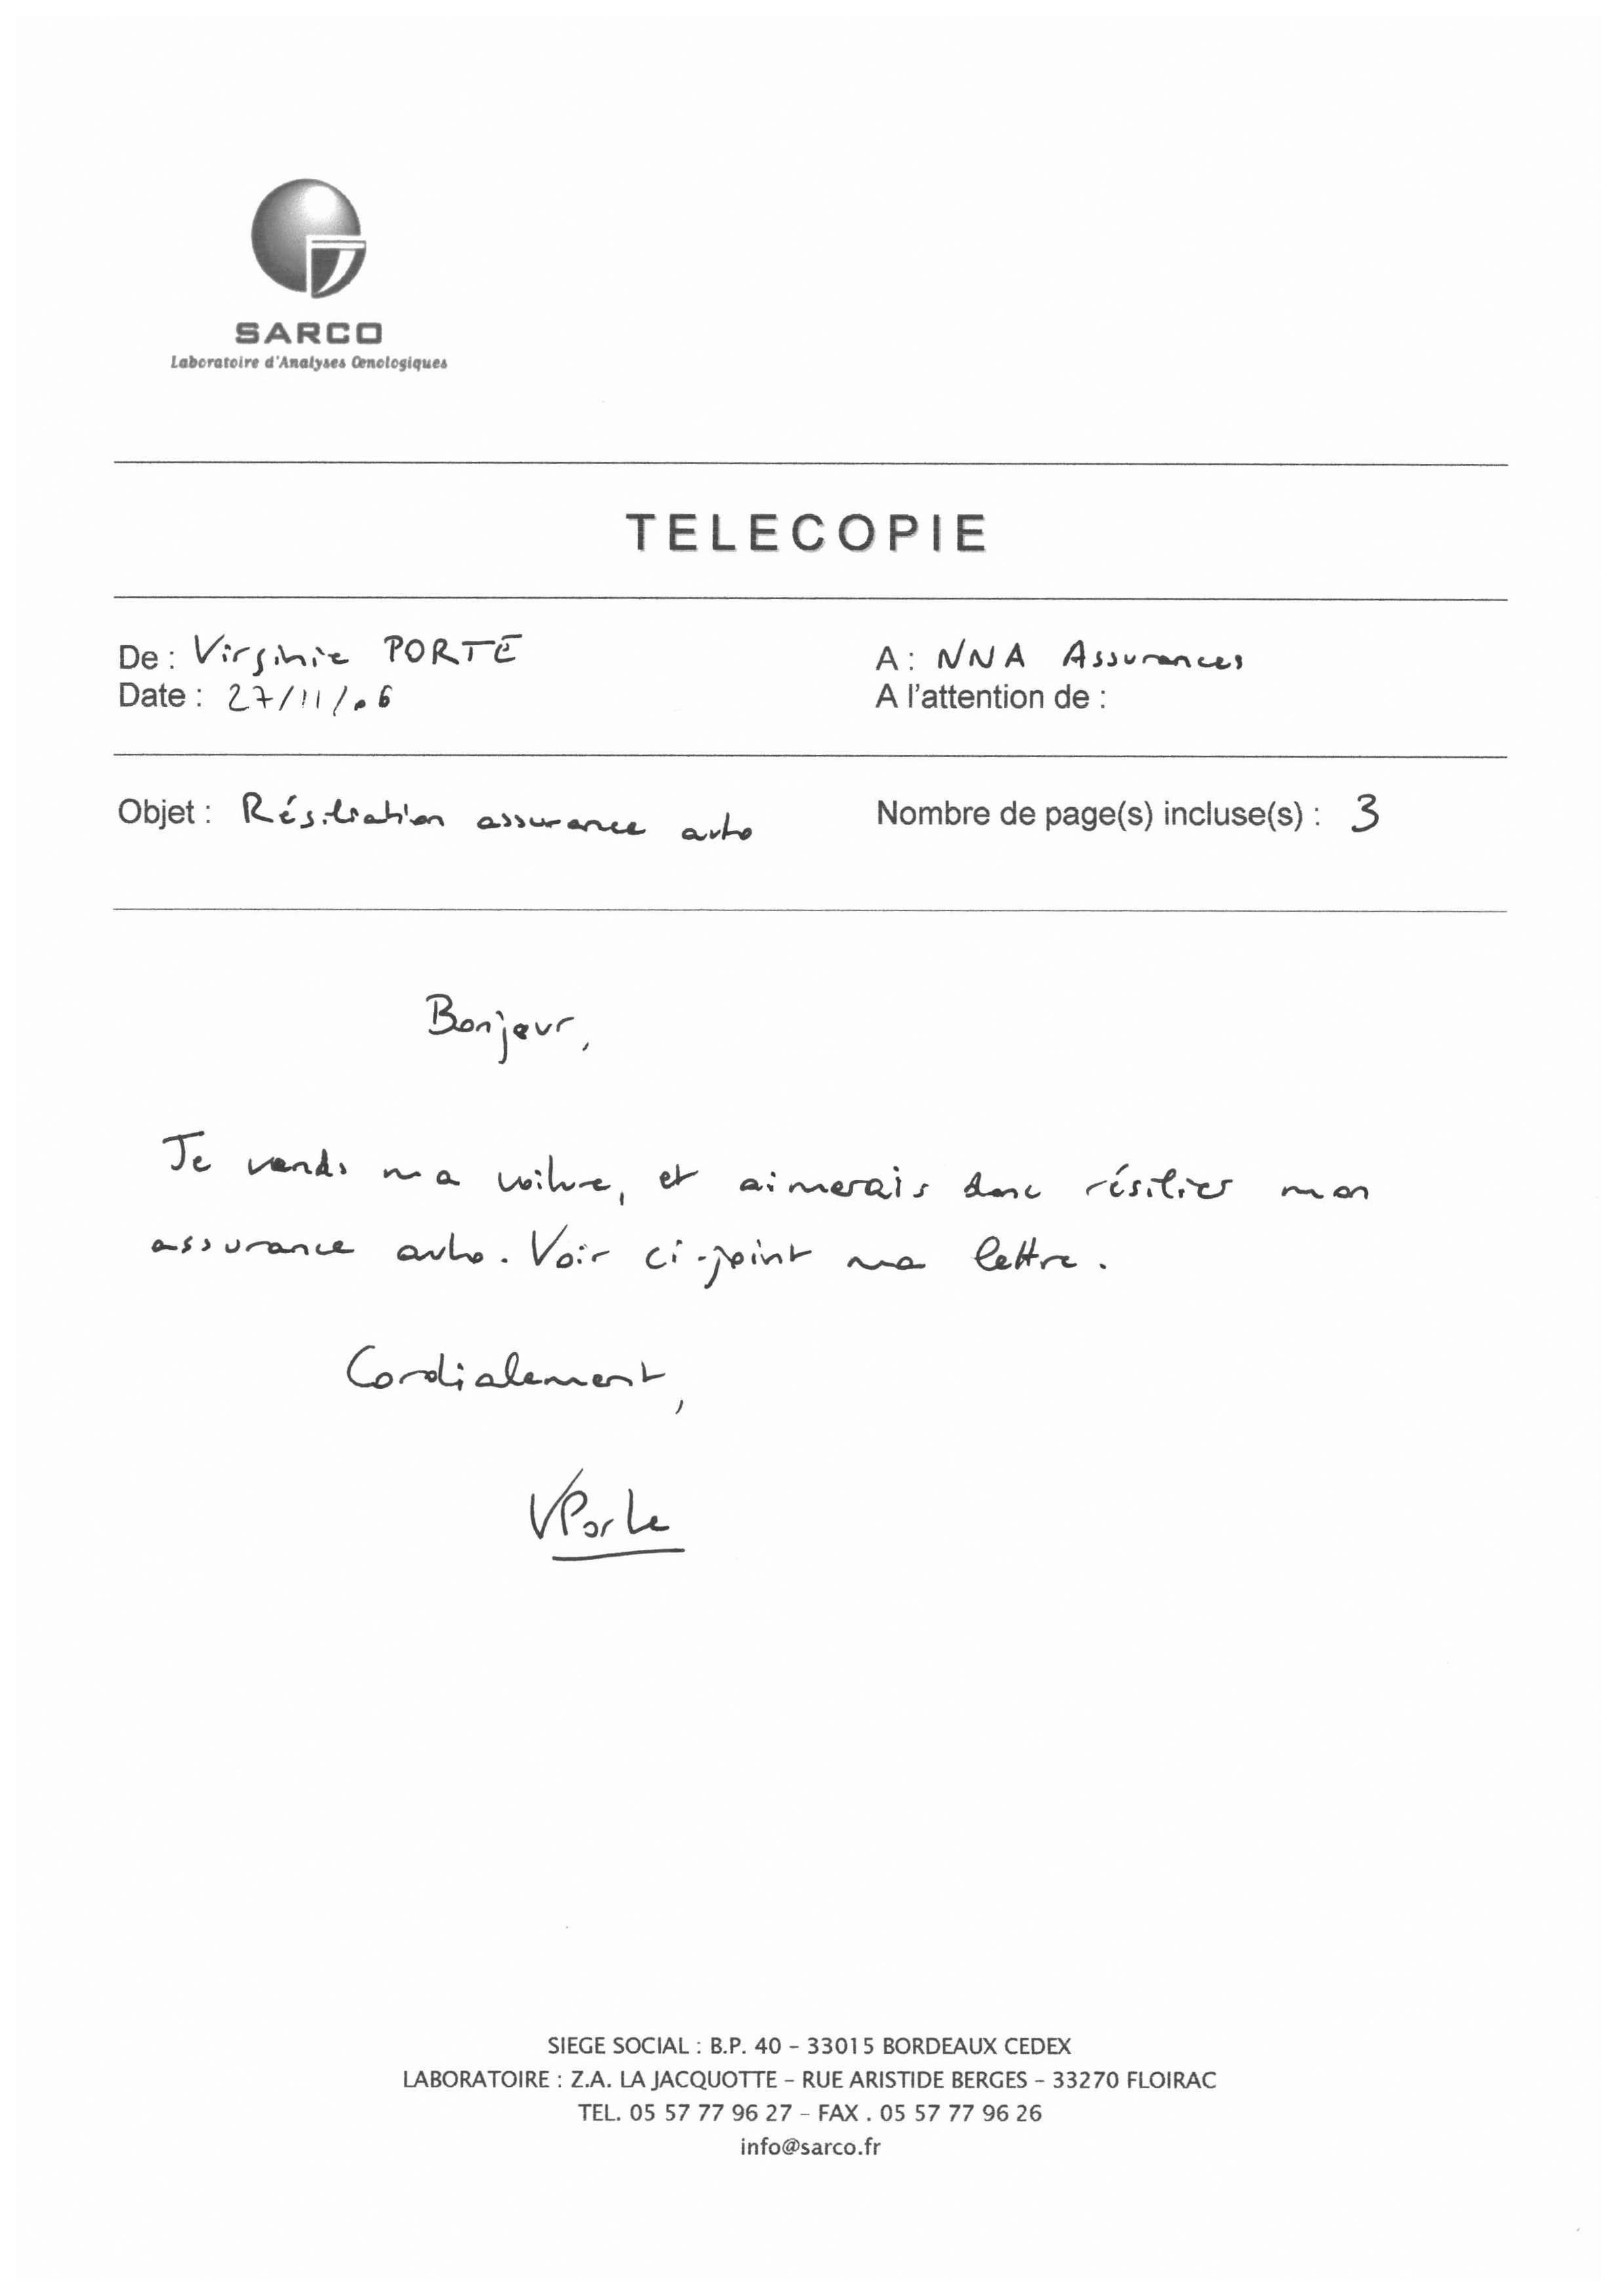 SARCO
Laboratoire d'Analyses Œnologiques
TELECOPIE
De : Virginie PORTE
A : NNA Assurances
Date : 27/11/06
A l'attention de :
Objet : Résiliation assurance auto
Nombre de page(s) incluse(s) : 3
Bonjour,
Je vends ma voiture, et aimerais donc résilier mon
assurance auto. Voir ci-joint ma lettre.
Cordialement,
VPorte
SIEGE SOCIAL : B.P. 40 – 33015 BORDEAUX CEDEX
LABORATOIRE : Z.A. LA JACQUOTTE – RUE ARISTIDE BERGES – 33270 FLOIRAC
TEL. 05 57 77 96 27 – FAX . 05 57 77 96 26
info@sarco.fr